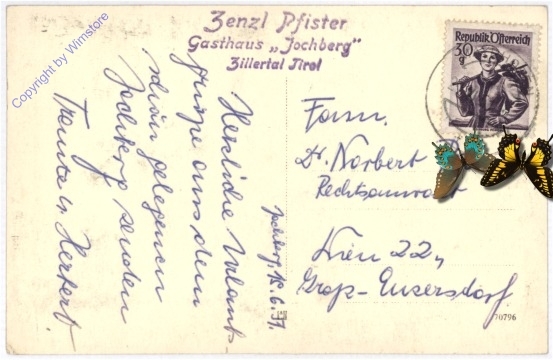 Copyright by Wimstore
Zenzl Pfister
Gasthaus „Jochberg"
Zillertal Tirol
Republik Österreich
30
g
Herzliche Urlaubs-
grüße aus dem
schön gelegenen
Jochberg senden
Traute u. Herbert.
Jochberg, 18.6.51
Fam.
Dr. Norbert
Rechtsanwalt
Wien 22,
Groß-Enzersdorf.
70796